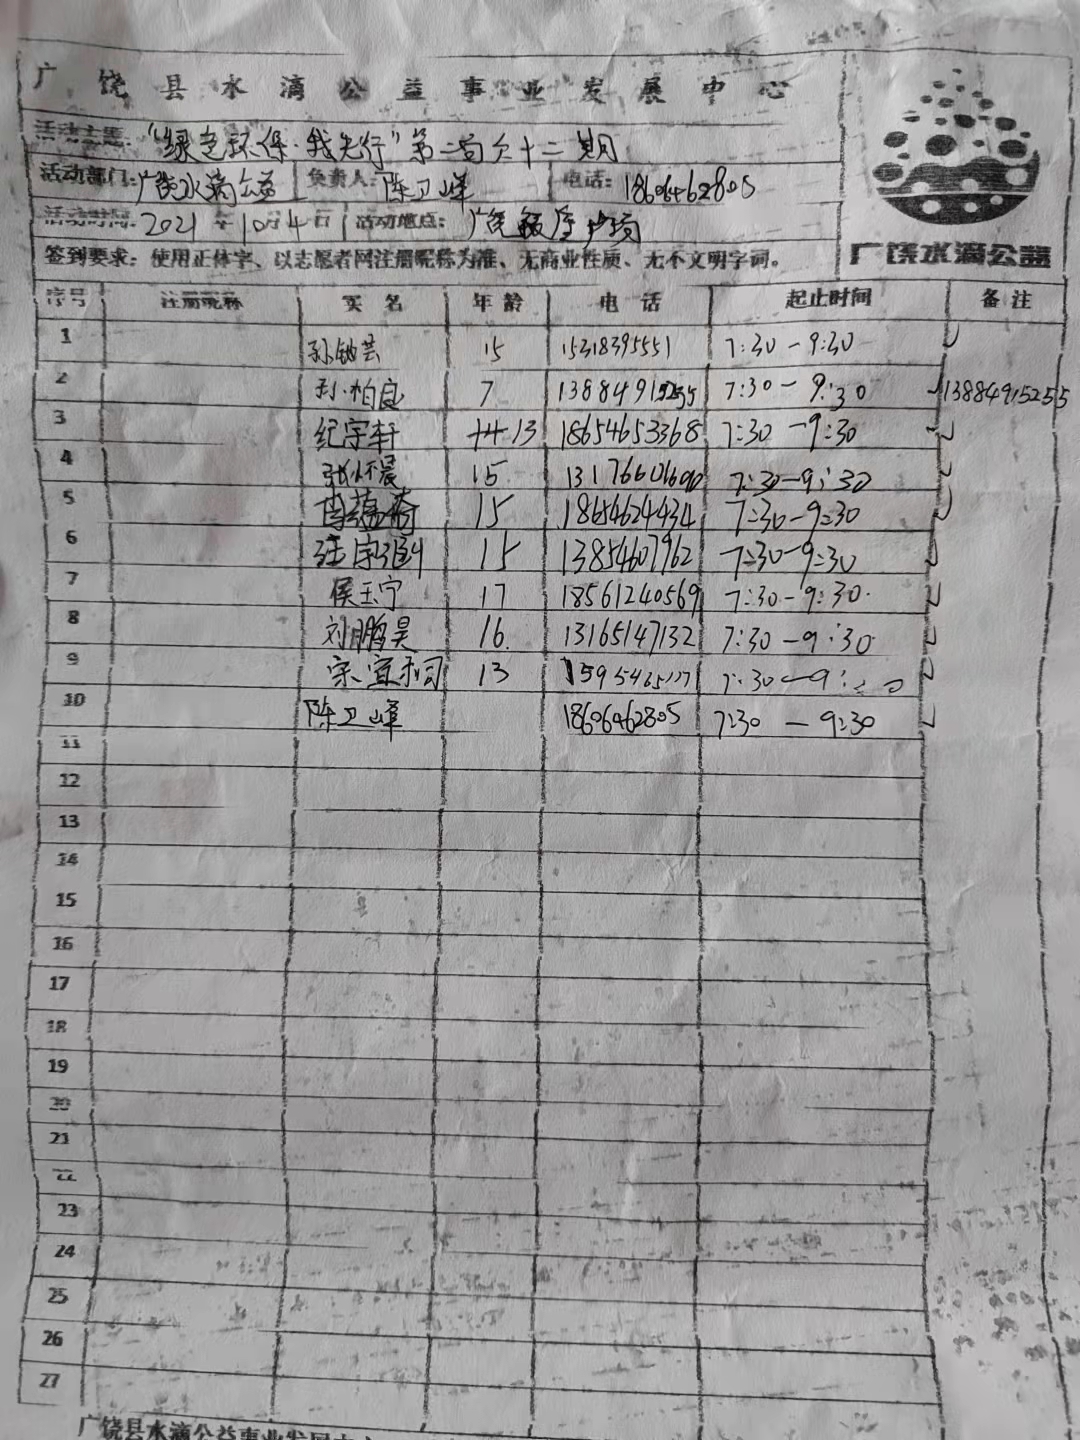 广饶县水滴公益事业发展中心
活动主题: "绿色环保·我先行"第二百六十二期
活动部门: 广饶水滴公益 负责人: 陈卫峰 电话: 18606462805
活动时间: 2021年10月4日 活动地点: 广饶
签到要求: 使用正体字、以志愿者网注册昵称为准、无商业性质、无不文明字词。
广饶水滴公益
序号 注册昵称 实名 年龄 电话 起止时间 备注
1 15 15318395551 7:30-9:30
2 孙柏良 7 13884915255 7:30-9:30 13884915255
3 纪宇轩 13 18654653368 7:30-9:30
4 张怀晨 15 7:30-9:30
5 15 18654624434 7:30-9:30
6 15 13854607962 7:30-9:30
7 侯玉宁 17 18561240569 7:30-9:30
8 刘鹏昊 16 13165147132 7:30-9:30
9 13
10 陈卫峰 18606462805 7:30-9:30
11
12
13
14
15
16
17
18
19
20
21
22
23
24
25
26
27
广饶县水滴公益事业发展中